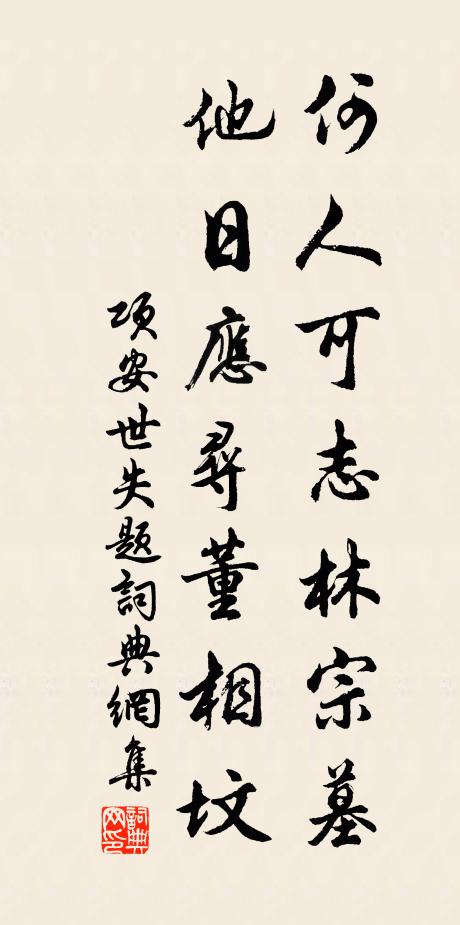 何人可志林宗墓
他日應尋董相墳
項安世失題詞典網集
詞典網印